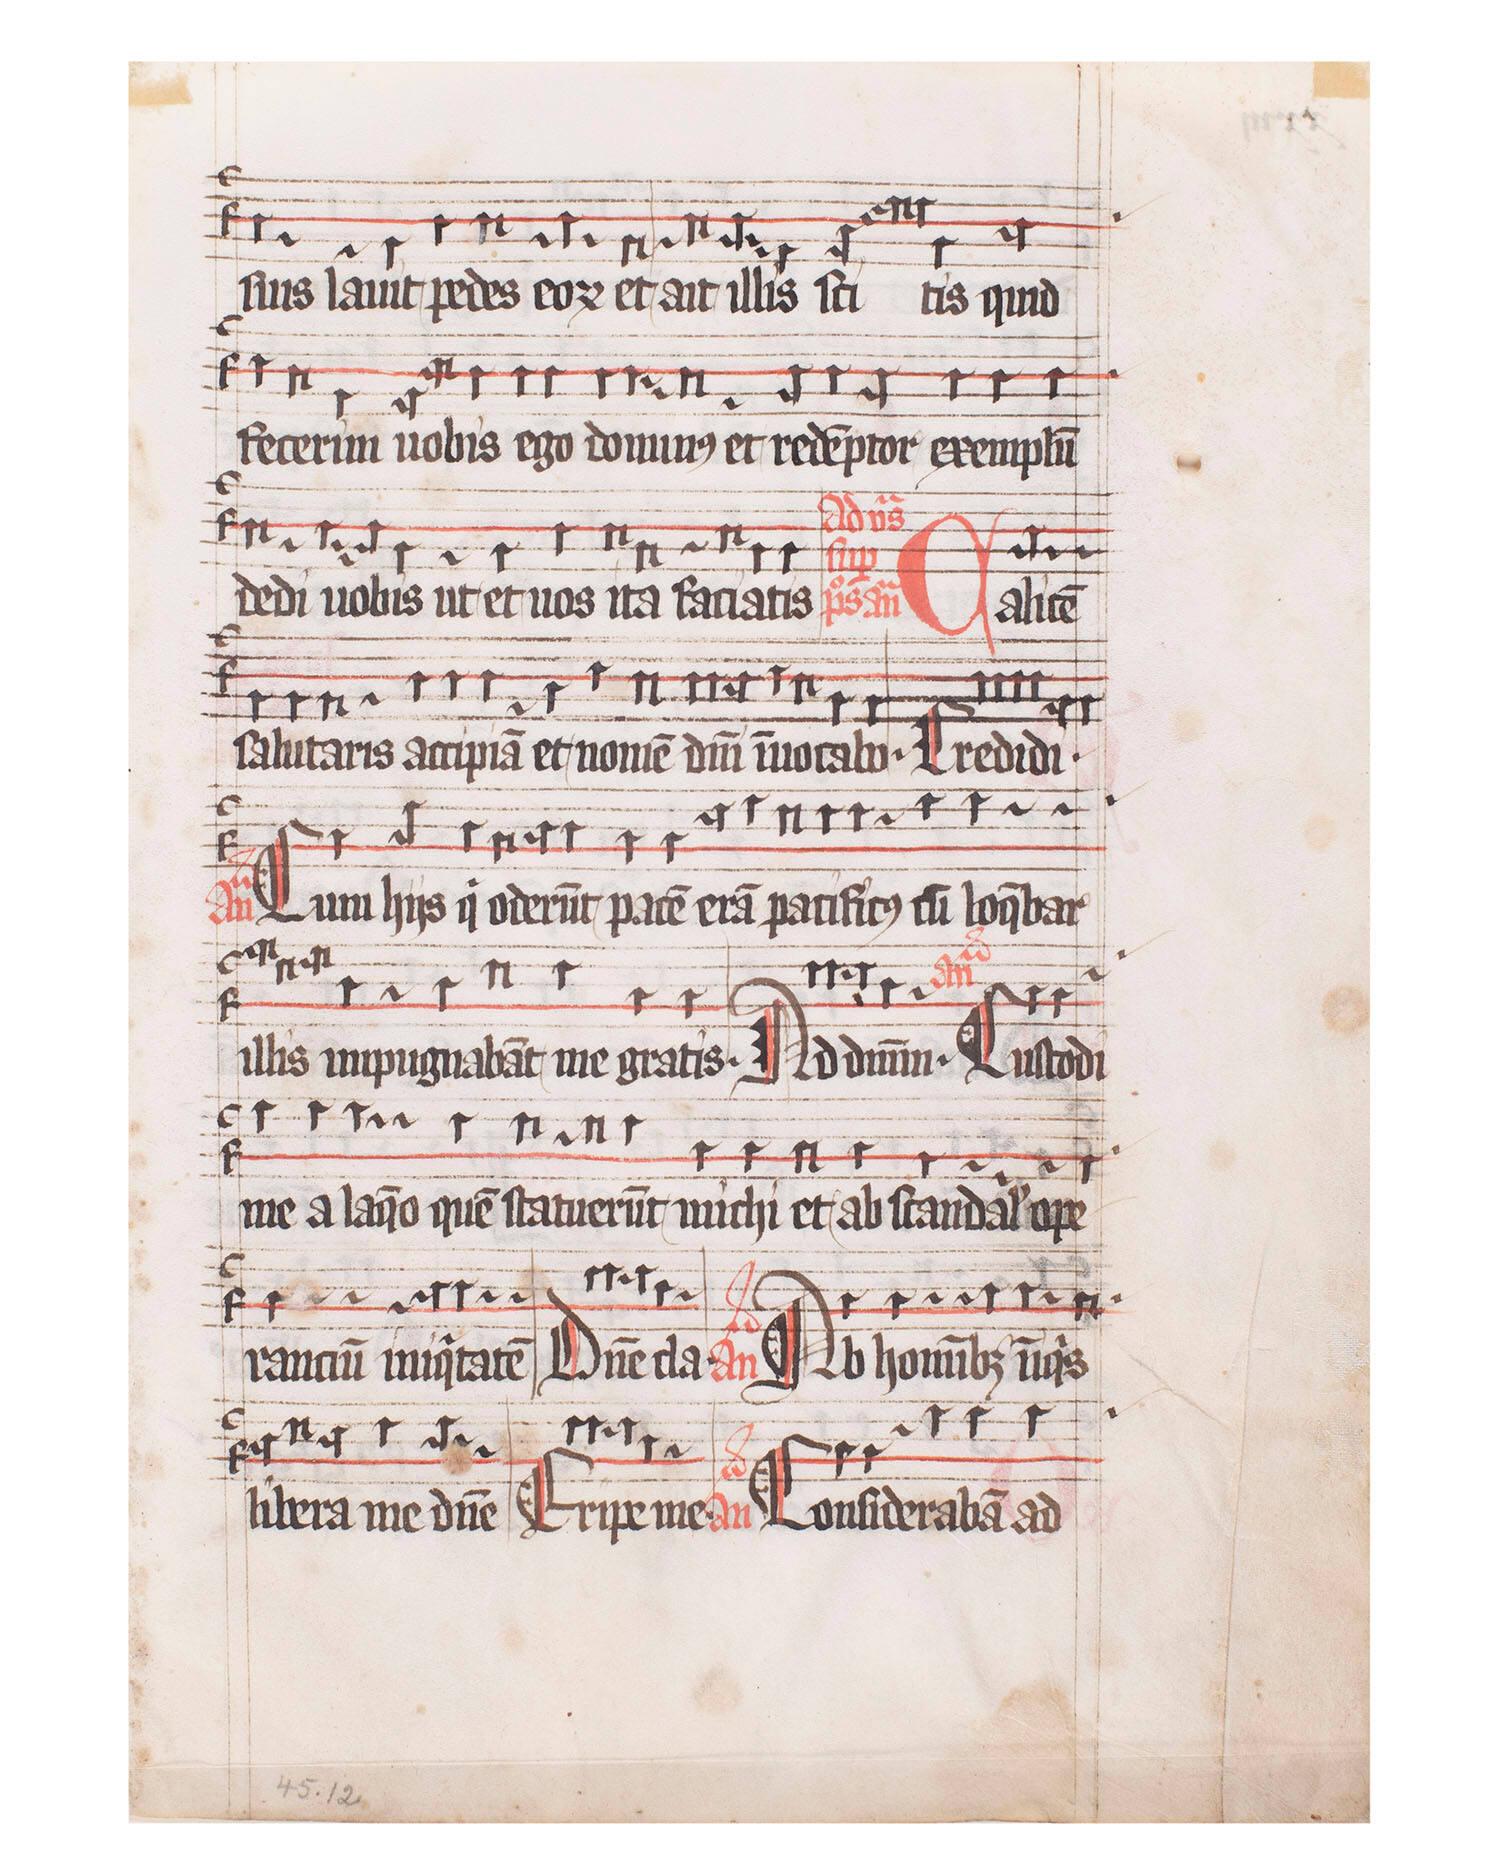 suis lauit pedes eoꝝ et ait illis sci tis quid
fecerim uobis ego dominꝰ et redēptor exemplū
dedi uobis ut et uos ita faciatis Ad vs̄ sup ps̄ an̄ Calicē
salutaris accipiā et nomē dn̄i īuocabo. Credidi.
An̄ Cum hijs qͥ oderūt pacē erā pacificꝰ cū loq̄bar
illis impugnabāt me gratis. Ad dnm̄. an̄ Custodi
me a laq̄o quē statuerūt michi et ab scandalˀ ope
ranciū iniqͥtatē Dn̄e cla. An̄ Ab homībꝫ inīqͥs
libera me dn̄e Eripe me. An̄ Considerabā ad
45.12